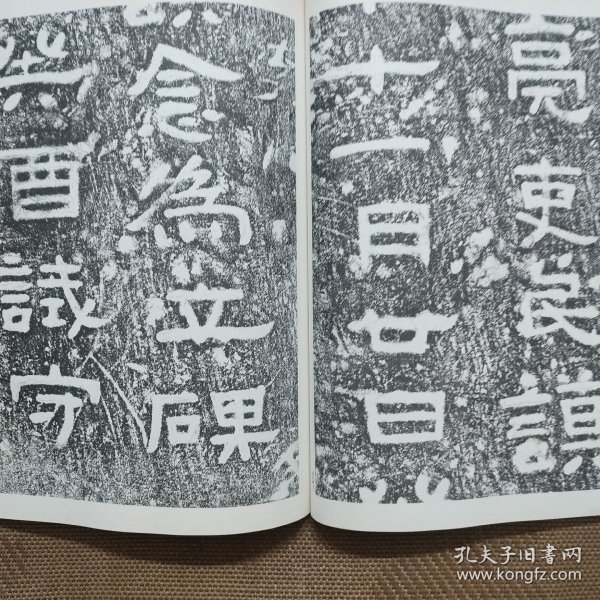 亮吏良謨
十一月廿日
念為立碑
癸酉試守
孔夫子旧书网
www.kongfz.com